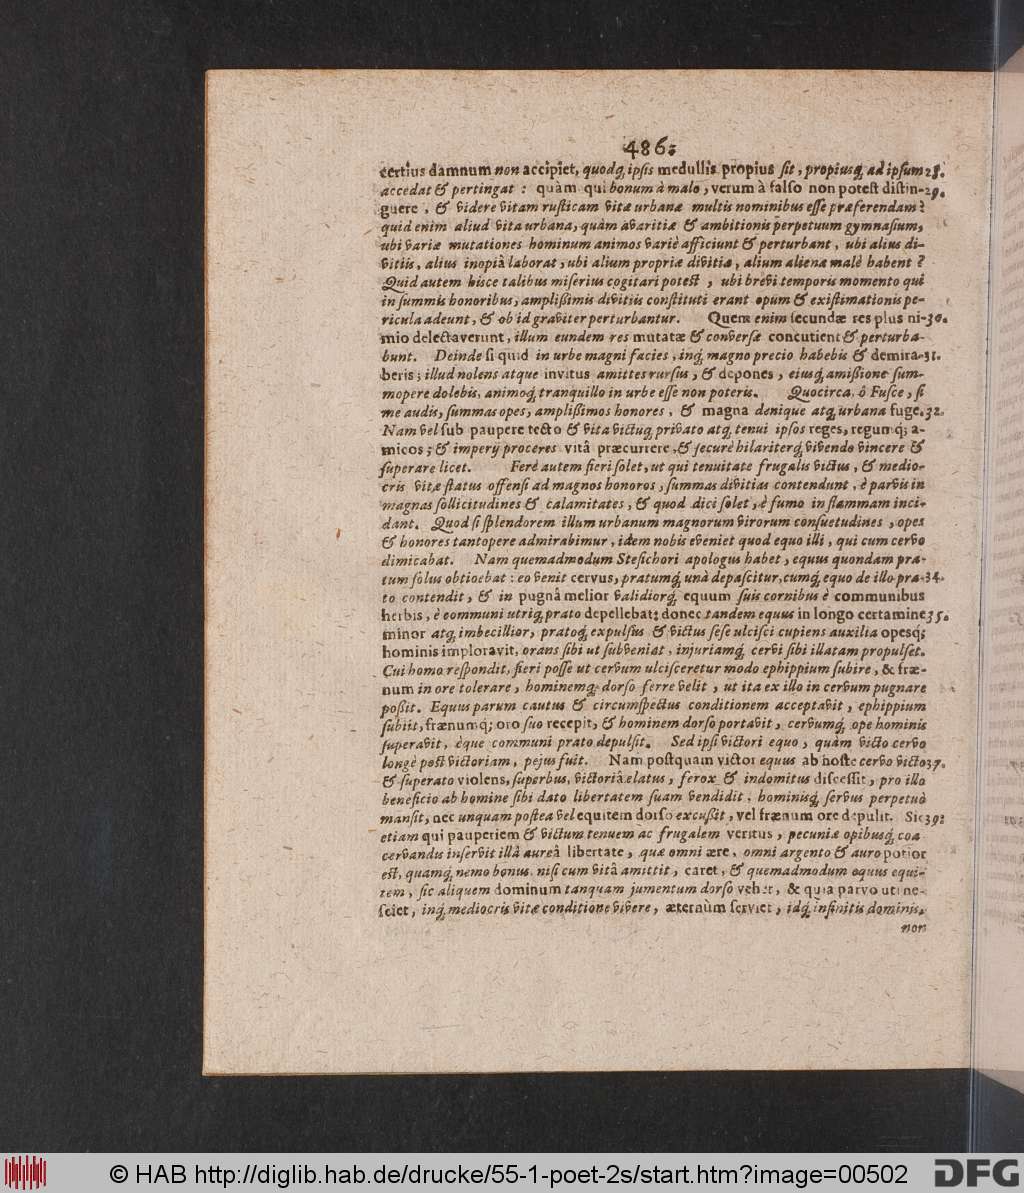 486.
certius damnum non accipiet, quodq́ ipsis medullis propius sit, propiusq́ ad ipsum 28.
accedat & pertingat : quàm qui bonum à malo, verum à falso non potest distin- 29.
guere, & videre vitam rusticam vitæ urbanæ multis nominibus esse præferendam?
quid enim aliud vita urbana, quàm avaritiæ & ambitionis perpetuum gymnasium,
ubi variæ mutationes hominum animos variè afficiunt & perturbant, ubi alius di-
vitiis, alius inopiâ laborat, ubi alium propriæ divitiæ, alium alienæ malè habent?
Quid autem hisce talibus miserius cogitari potest, ubi brevi temporis momento qui
in summis honoribus, amplißimis divitiis constituti erant opum & existimationis pe-
ricula adeunt, & ob id graviter perturbantur. Quem enim secundæ res plus ni- 30.
mio delectaverunt, illum eundem res mutatæ & conversæ concutient & perturba-
bunt. Deinde si quid in urbe magni facies, inq́ magno precio habebis & demira- 31.
beris; illud nolens atque invitus amittes rursus, & depones, ejusq́ amißione sum-
mopere dolebis, animoq́ tranquillo in urbe esse non poteris. Quocirca, ô Fusce, si
me audis, summas opes, amplißimos honores, & magna denique atq́ urbana fuge. 32.
Nam vel sub paupere tecto & vita victuq́ privato atq́ tenui ipsos reges, regumq́; a-
micos; & imperij proceres vitâ præcurrere, & securè hilariterq́ vivendo vincere &
superare licet. Ferè autem fieri solet, ut qui tenuitate frugalis victus, & medio-
cris vitæ status offensi ad magnos honoros, summas divitias contendunt, è parvis in
magnas sollicitudines & calamitates, & quod dici solet, è fumo in flammam inci-
dant. Quod si splendorem illum urbanum magnorum virorum consuetudines, opes
& honores tantopere admirabimur, idem nobis eveniet quod equo illi, qui cum cervo
dimicabat. Nam quemadmodum Stesichori apologus habet, equus quondam pra-
tum solus obtinebat : eo venit cervus, pratumq́ unà depascitur, cumq́ equo de illo pra- 34.
to contendit, & in pugnâ melior validiorq́ equum suis cornibus è communibus
herbis, è communi utriq́ prato depellebat; donec tandem equus in longo certamine 35.
minor atq́ imbecillior, pratoq́ expulsus & victus sese ulcisci cupiens auxilia opesq́;
hominis imploravit, orans sibi ut subveniat, injuriamq́ cervi sibi illatam propulset.
Cui homo respondit, fieri posse ut cervum ulcisceretur modo ephippium subire, & fræ-
num in ore tolerare, hominemq́ dorso ferre velit, ut ita ex illo in cervum pugnare
poßit. Equus parum cautus & circumspectus conditionem acceptavit, ephippium
subiit, frænumq́; oro suo recepit, & hominem dorso portavit, cervumq́ ope hominis
superavit, èque communi prato depulsit. Sed ipsi victori equo, quàm victo cervo
longè post victoriam, pejus fuit. Nam postquam victor equus ab hoste cervo victo 37.
& superato violens, superbus, victoriâ elatus, ferox & indomitus discessit, pro illo
beneficio ab homine sibi dato libertatem suam vendidit, hominisq́ servus perpetuò
mansit, nec unquam postea vel equitem dorso excußit, vel frænum ore depulit. Sic 39.
etiam qui pauperiem & victum tenuem ac frugalem veritus, pecuniæ opibusq́ coa
cervandis inservit illâ aureâ libertate, quæ omni ære, omni argento & auro potior
est, quamq́ nemo bonus, nisi cum vitâ amittit, caret, & quemadmodum equus equi-
tem, sic aliquem dominum tanquam jumentum dorso vehet, & quia parvo uti ne-
sciet, inq́ mediocris vitæ conditione vivere, æternùm serviet, idq́ infinitis dominis,
non
© HAB http://diglib.hab.de/drucke/55-1-poet-2s/start.htm?image=00502
DFG